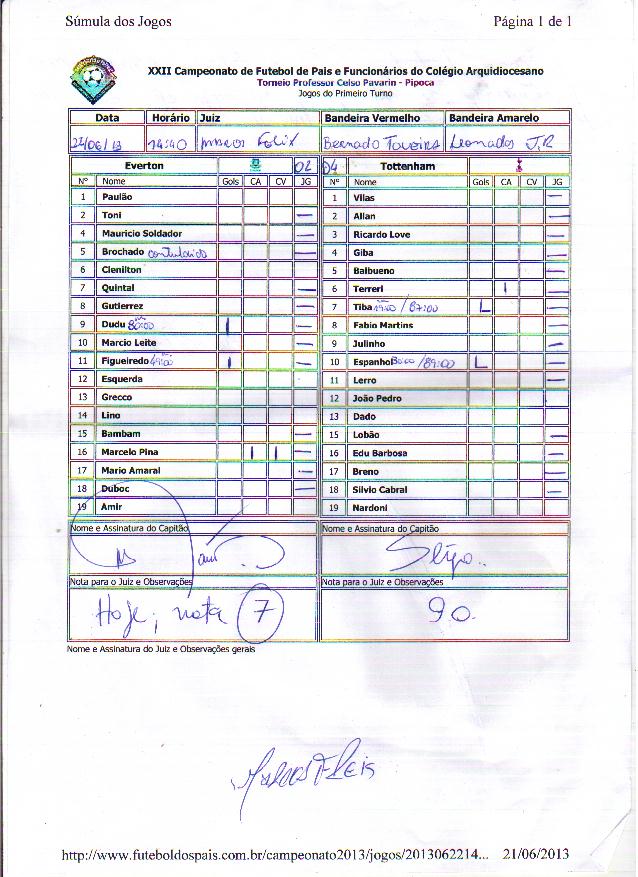 Súmula dos Jogos Página 1 de 1
XXII Campeonato de Futebol de Pais e Funcionários do Colégio Arquidiocesano
Torneio Professor Celso Pavarin - Pipoca
Jogos do Primeiro Turno
Data Horário Juiz Bandeira Vermelho Bandeira Amarelo
22/06/13 14:40 Marcos Felix Bernado Leonardo J.R
Everton 02 04 Tottenham
Nº Nome Gols CA CV JG Nº Nome Gols CA CV JG
1 Paulão 1 Vilas
2 Toni 2 Allan
4 Mauricio Soldador 3 Ricardo Love
5 Brochado contundido 4 Giba
6 Clenilton 5 Balbueno
7 Quintal 6 Terreri
8 Gutierrez 7 Tiba 19:00 / 87:00
9 Dudu 80:00 8 Fabio Martins
10 Marcio Leite 9 Julinho
11 Figueiredo 49:00 10 Espanhol 80:00 / 89:00
12 Esquerda 11 Lerro
13 Grecco 12 João Pedro
14 Lino 13 Dado
15 Bambam 15 Lobão
16 Marcelo Pina 16 Edu Barbosa
17 Mario Amaral 17 Breno
18 Duboc 18 Silvio Cabral
19 Amir 19 Nardoni
Nome e Assinatura do Capitão Nome e Assinatura do Capitão
Nota para o Juiz e Observações Nota para o Juiz e Observações
Hoje, nota 7 90.
Nome e Assinatura do Juiz e Observações gerais
http://www.futeboldospais.com.br/campeonato2013/jogos/2013062214... 21/06/2013